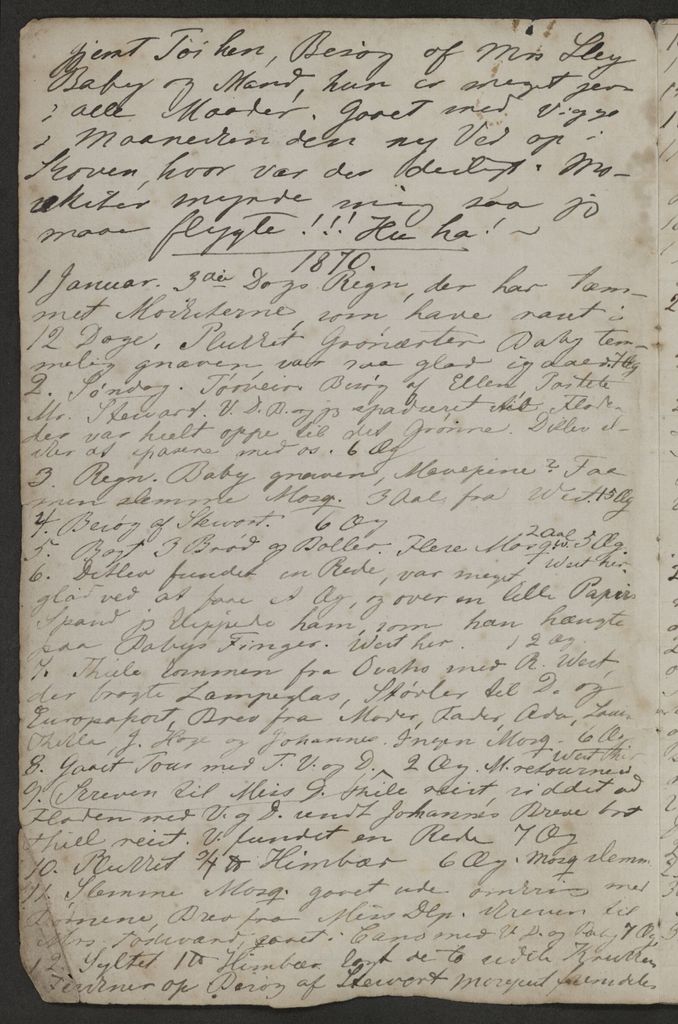 pent Tøi hen, Besøg af Mrs Sley
Baby og Mand, hun er meget pæn
i alle Maader. Gaaet med Viggo
i Maaneskin den ny Vei op i
Skoven, hvor var der deiligt. Mo-
skiter myrde mig saa jeg
maae flygte!!! Hu ha!
1870
1 Januar. 3die Dags Regn, der har tæm-
met Moskiterne, som have raset i
12 Dage. Plukket Grønærter Baby tem-
melig gnaven var saa glad igaar.
2. Søndag. Tørveir Besøg af Ellen
Mr. Stewart. V. D. B. og jeg spadseret til Floden
der var heelt oppe til det Grønne. Ditlev
at spasere med os. 6 Æg
3. Regn. Baby gnaven, Mavepine? Faa
men slemme Mosq. 3 Aal fra West. 15 Æg
4. Besøg af Stewart. 6 Æg
5. Bagt 3 Brød og Boller. Flere Mosq. 2 Aal 5 Æg.
6. Ditlev fundet en Rede, var meget West her.
glad ved at faae et Æg, og over en lille Papirs
Spand jeg klippede ham som han hængte
paa Babys Finger. West her. 12 Æg
7. Thiele kommen fra Ovaho med R. West,
der bragte Lampeglas, Støvler til D. og
Europapost, Brev fra Moder, Fader, Ada,
Thilla J. Hage og Johannes. Ingen Mosq. 6 Æg
8. Gaaet Tour med T. V. og D. 2 Æg. M. retournerer West her
9. Skreven til Miss D. Thile reist, riddet ad
Floden med V. og D. sendt Johannes Breve bort
Thiell reist. V. fundet en Rede 7 Æg
10. Plukket 4 ℔ Himbær 6 Æg. Mosq slemme
11. Slemme Mosq. gaaet ude omkring med
Børnene, Brev fra Miss Dlp. skreven til
Mrs. gaaet i Cano med V. D. og Baby 7 Æg
12. Syltet 1 ℔ Himbær de to Krukker
op Besøg af Stewart